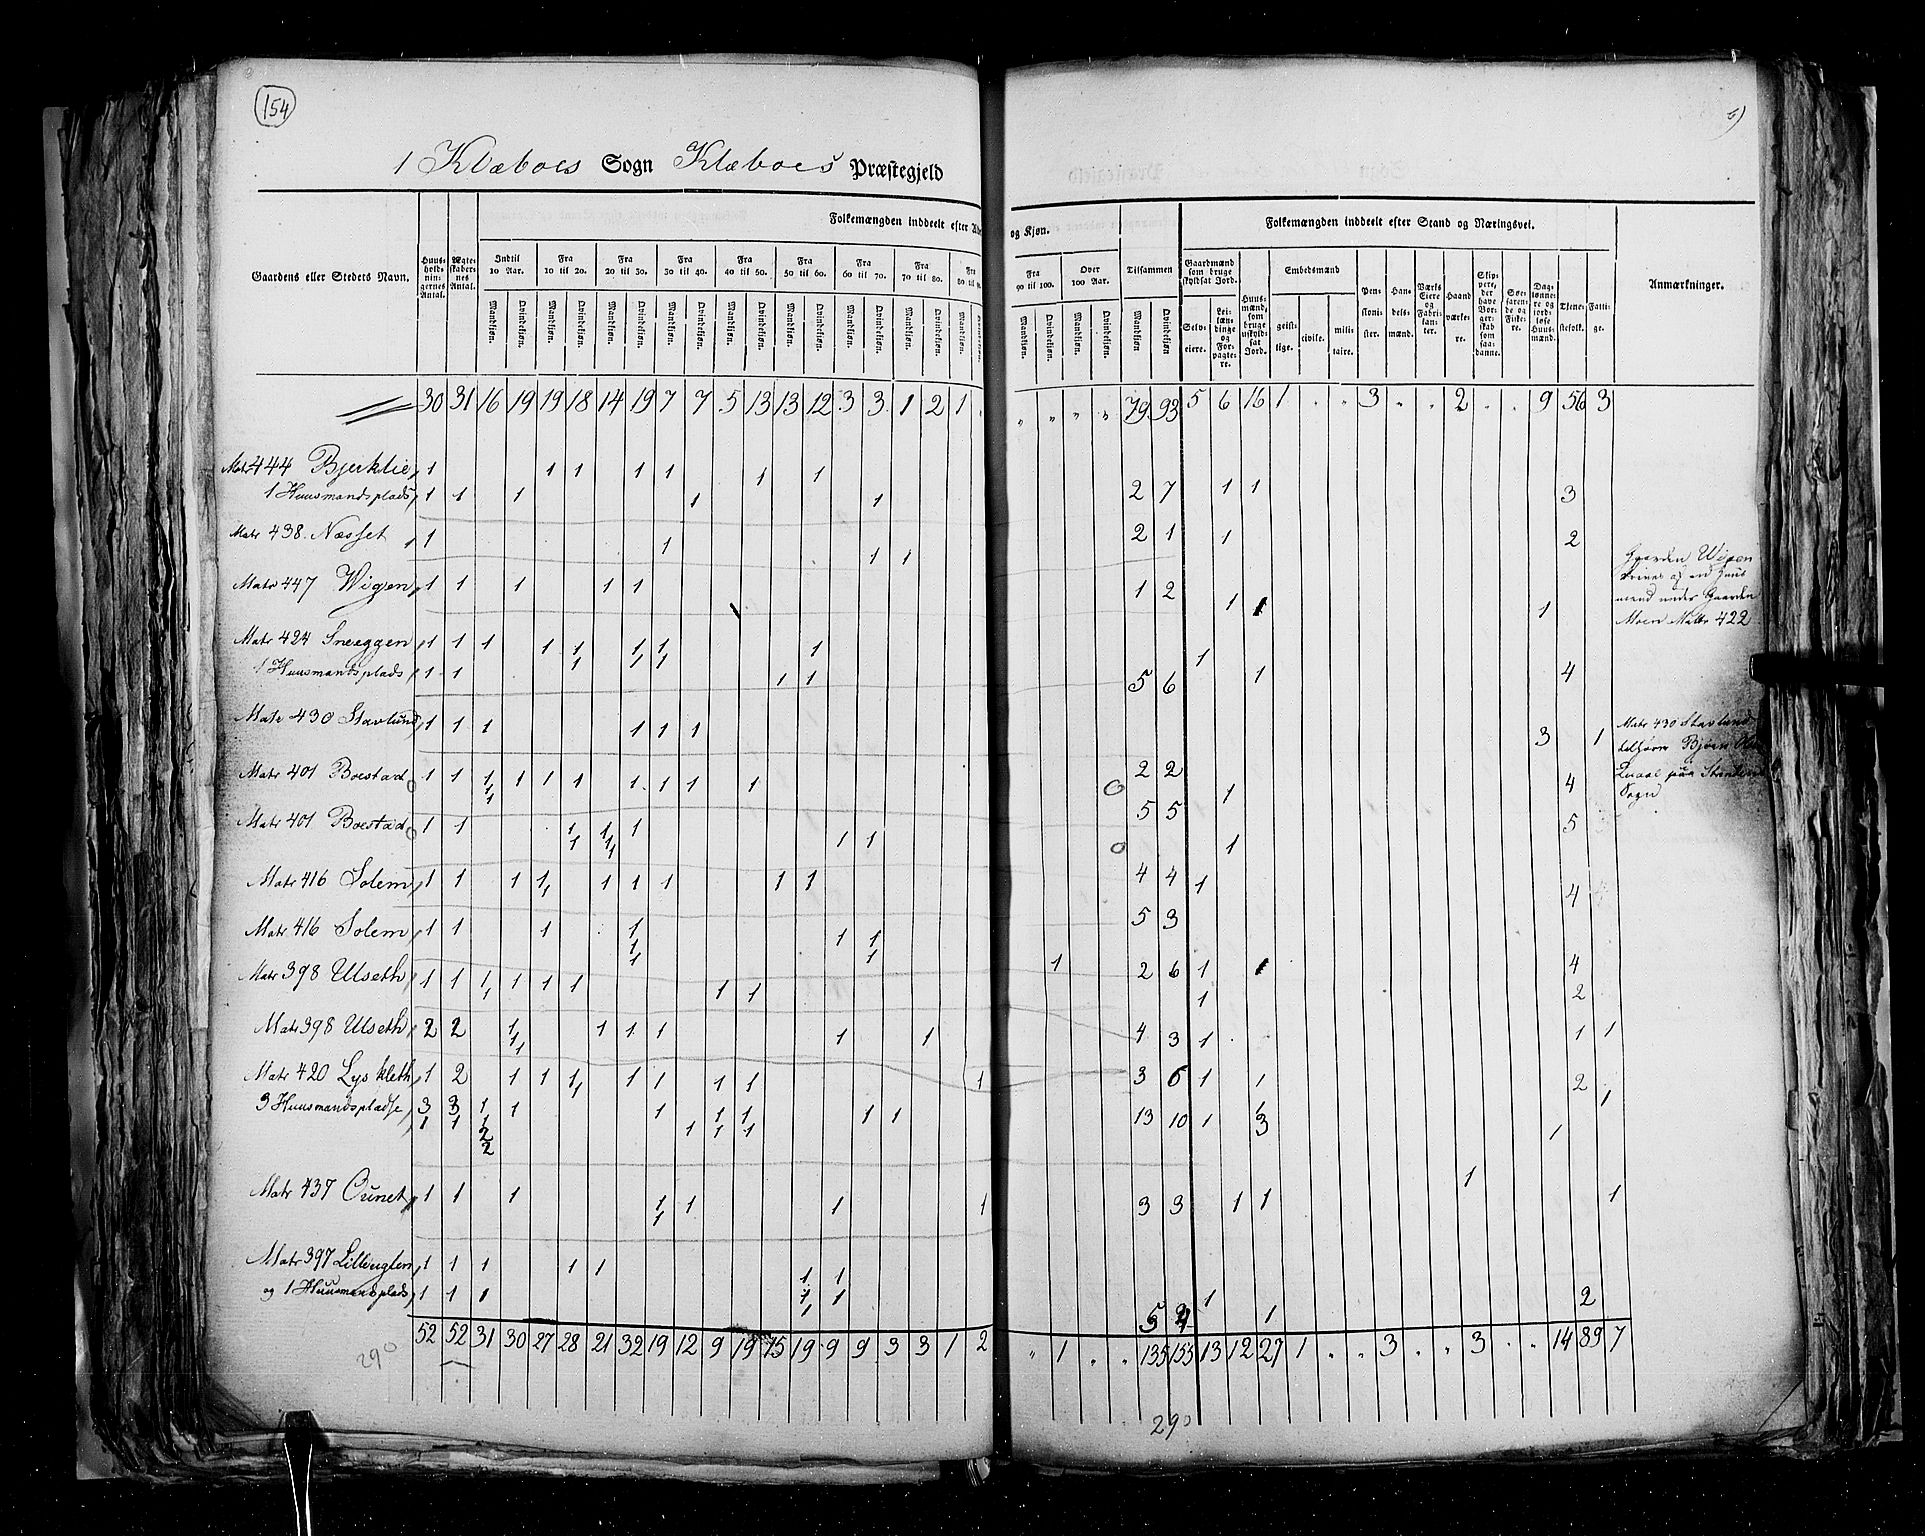 154
5)
1 Klæboes Sogn Klæboes Præstegjeld
Folkemængden inddeelt efter Alder og Kjøn.
Folkemængden inddeelt efter Stand og Næringsvei.
Gaardens eller Stedets Navn.
Huusholdningernes Antal.
Ægteskabernes Antal.
Indtil 10 Aar.
Fra 10 til 20.
Fra 20 til 30.
Fra 30 til 40.
Fra 40 til 50.
Fra 50 til 60.
Fra 60 til 70.
Fra 70 til 80.
Fra 80 til 90.
Fra 90 til 100.
Over 100 Aar.
Tilsammen
Mandkjøn. Qvindekjøn.
Gaardmænd som bruge skyldsat Jord.
Selveiere.
Leilændinge og Forpagtere.
Huusmænd, som bruge uskyldsat Jord.
Embedsmænd
geistlige. civile. militaire.
Pensionister.
Handelsmænd.
Værks Eiere og Fabrikanter.
Haandværkere.
Skippere, der have Borgerskab som saadanne.
Søefarende og Fiskere.
Daglønnere og jordløse Huusmænd.
Tjenestefolk.
Fattige.
Anmærkninger.
30 31 16 19 19 18 14 19 7 7 5 13 13 12 3 3 1 2 1 „ „ „ „ „ 79 93 5 6 16 1 „ „ 3 „ „ 2 „ „ 9 56 3
Matr 444 Bjerklie, 1 1 1 1 1 1 1
1 Huusmandsplads, 1 1 1 1 1 2 7 1 1 3
Matr 438. Næsset 1 1 1 1 2 1 1 2
Matr 447 Wigen, 1 1 1 1 1 1 2 1 1 1
Gaarden Wigen
mand under Gaarden
Moen Matr 422
Matr 424 Sneeggen 1 1 1 1 1 1 1 1 1 1 1 1
1 Huusmandsplads 1 1 1 1 5 6 1 4
Matr 430 Stavlund, 1 1 1 1 1 1 2 2 3 1
Matr 430 Stavlund
tilhører Bjørn
paa
Sogn
Matr 401 Boestad 1 1 1 1 1 1 1 1 1 1 1 5 5 1 4
Matr 401 Boestad 1 1 1 1 1 1 1 1 1 1 4 4 1 5
Matr 416 Solem, 1 1 1 1 1 1 1 1 1 1 5 3 1 4
Matr 416 Solem, 1 1 1 1 1 1 1 1 1 1 2 6 1 1 4
Matr 398 Ulseth, 1 1 1 1 1 1 1 1 1 4 3 1 2
Matr 398 Ulseth, 2 2 1 1 1 1 1 1 1 1 3 6 1 1 1
Matr 420 Lyskleth, 1 2 1 1 1 1 1 1 1 1 1 13 10 1 1 2
3 Huusmandspladse, 3 3 1 1 1 1 1 1 1 3 1 1
1 1 1 2 2 1 1 1
Matr 437 Ounet, 1 1 1 1 1 1 1 1 3 3 1 1 1 1
Matr 397 Lilleuglen, 1 1 1 1 1 1 1
og 1 Huusmandsplads, 1 1 1 1 1 1 5 4 1 1 2
52 52 31 30 27 28 21 32 19 12 9 19 15 19 9 9 3 3 1 2 „ 1 „ „ 135 155 13 12 27 1 „ „ 3 „ „ 3 „ „ 14 89 7
290
290